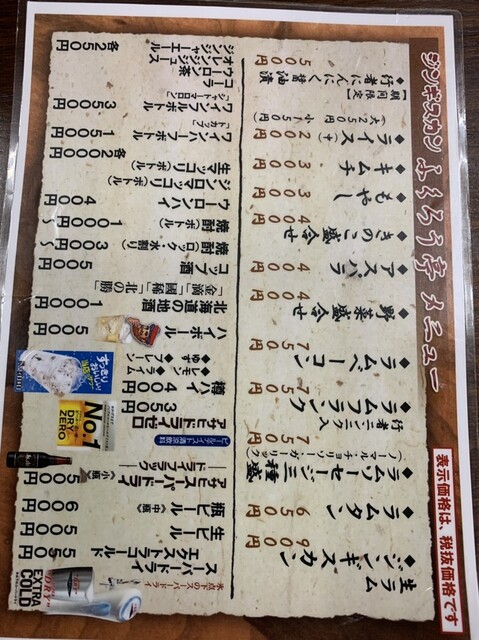 ジンギスカン ふくろう亭 メニュー
表示価格は、税抜価格です
生ラム
◆ジンギスカン 900円
◆ラムタン 650円
◆ラムソーセージ三種盛 750円
行者ニンニク入
◆ラムフランク 750円
◆ラムベーコン 750円
◆野菜盛合せ 400円
◆アスパラ 400円
◆きのこ盛合せ 400円
◆もやし 300円
◆キムチ 300円
◆ライス(中) 200円
(大250円 小150円)
【期間限定】
◆行者にんにく醤油漬 500円
氷点下のスーパードライ
スーパードライ
エクストラコールド 550円
生ビール 500円
瓶ビール《中瓶》 600円
アサヒスーパードライ
―ドライブラック― 《小瓶》
ビールテイスト清涼飲料
アサヒドライゼロ 350円
樽ハイ 400円
◆レモン ◆ライム
◆ゆず ◆プレーン
ハイボール 500円
北海道の地酒 1000円
「金滴」「國稀」「北の勝」
コップ酒 500円
焼酎(ロック・水割り) 300円～
焼酎(ボトル) 1000円～
ウーロンハイ 400円
ジンロマッコリ(ボトル)
生マッコリ(ボトル) 各2000円
ワインハーフボトル 1500円
「トカップ」
ワインフルボトル 3500円
コーラ
ウーロン茶
オレンジジュース
ジンジャーエール 各250円
すっきりおいしい!
No.1
DRY ZERO
EXTRA COLD